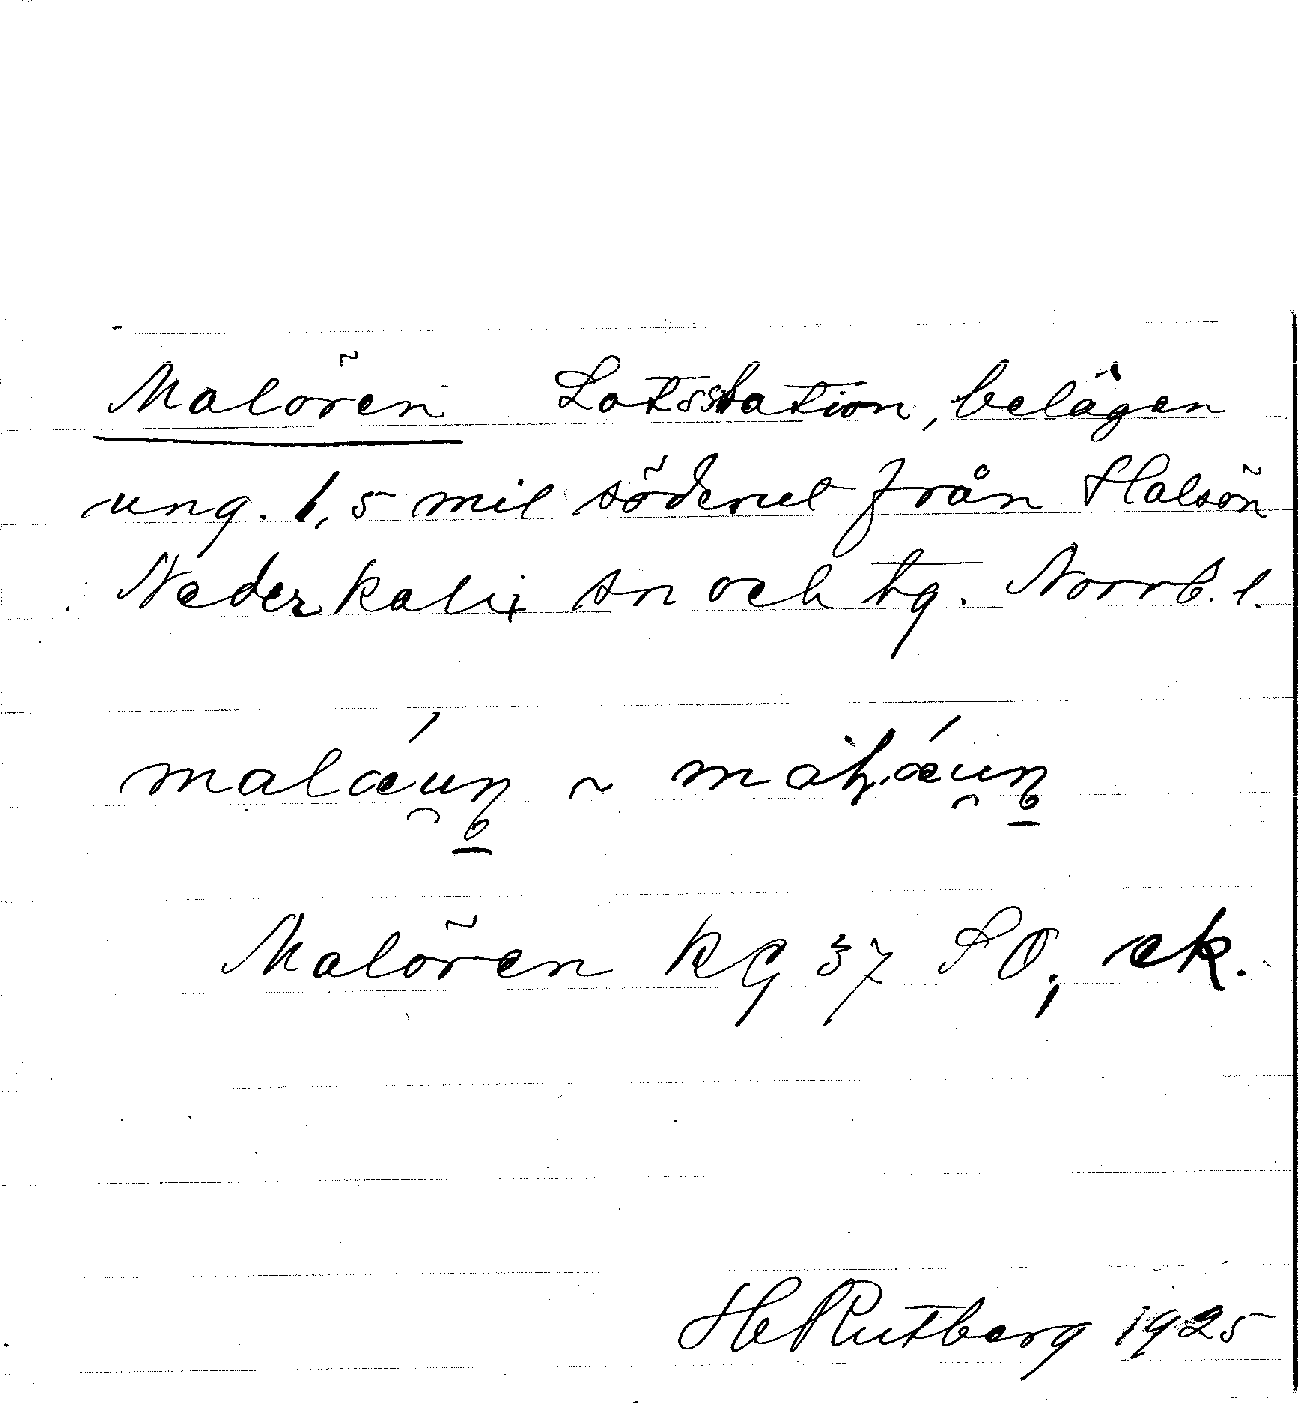 Malören Lotsstation, belägen
ung. 1,5 mil söderut från Halsön
Nederkalix sn och tg. Norrb. l.
malǽu̯n̥ ~ maꞎǽu̯n̥
Malören KG 37 SO, ek.
H Rutberg 1925